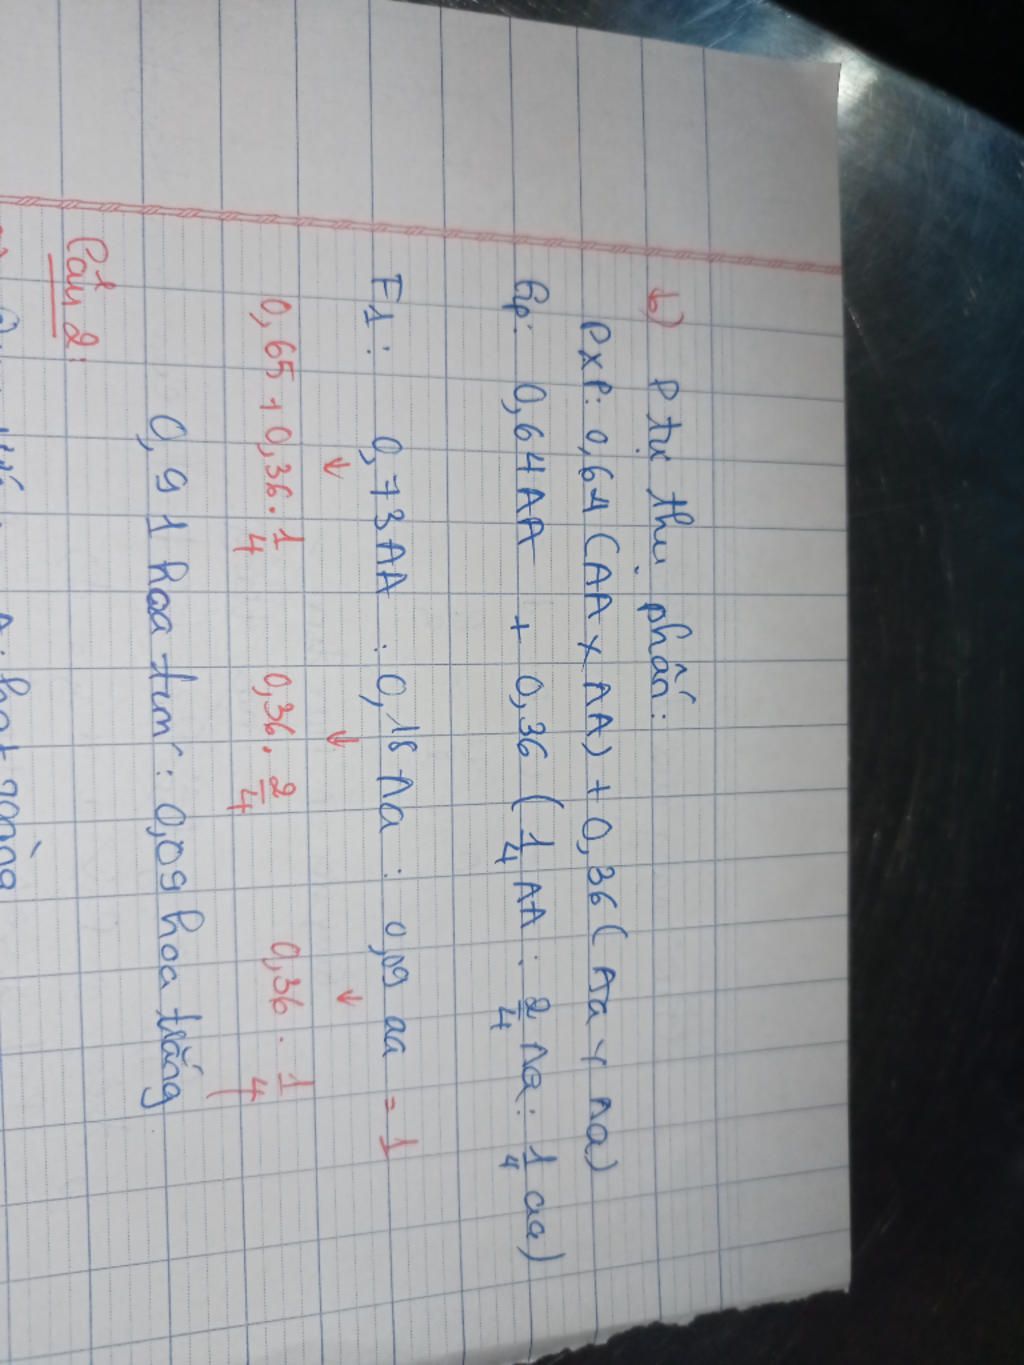 b) P tự thụ phấn:
PxP: 0,64 (AA x AA) + 0,36 (Aa x Aa)
Gp: 0,64AA + 0,36 (1/4 AA : 2/4 Aa : 1/4 aa)
F1: 0,73AA : 0,18 Aa : 0,09 aa = 1
↓ ↓ ↓
0,65 + 0,36 . 1/4 0,36 . 2/4 0,36 . 1/4
0,91 hoa tím : 0,09 hoa trắng
Câu 2: